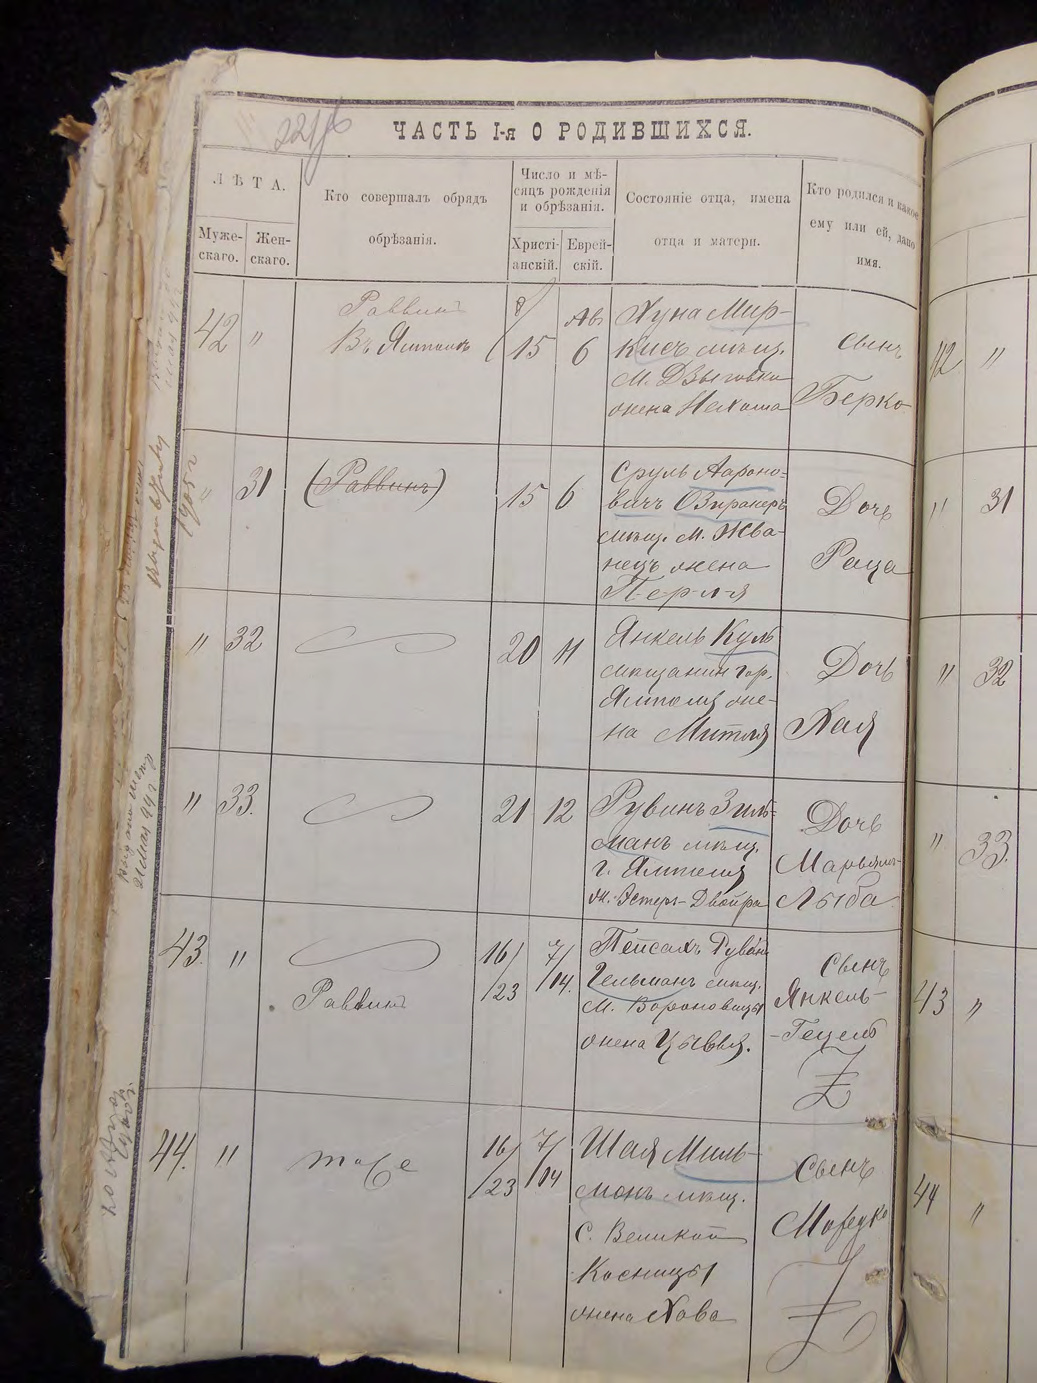 ЧАСТЬ I-я О РОДИВШИХСЯ.
ЛѢТА.
Муже-
скаго.
Жен-
скаго.
Кто совершалъ обрядъ
обрѣзанія.
Число и мѣ-
сяцъ рожденія
и обрѣзанія.
Христі-
анскій.
Еврей-
скій.
Состояніе отца, имена
отца и матери.
Кто родился и какое
ему или ей, дано
имя.
42
"
Раввинъ
Въ Ямполѣ
8/
/15
Авъ
6
Хуна Мир-
кисъ мѣщ.
м. Дзыговки
жена Нехама
Сынъ
Берко
42
"
"
31
(Раввинъ)
15
6
Сруль Аароно-
вичъ Озиранеръ
мѣщ. м. Жва-
нецъ жена
Перля
Дочь
Раца
"
31
"
32
20
11
Янкель Куль
мѣщанин гор.
Ямполя же-
на Митля
Дочь
Хая
"
32
"
33.
21
12
Рувинъ Зиль-
манъ мѣщ.
г. Ямполя
ж. Эстеръ-Двойра
Дочь
Марьямъ-
Лыба
"
33.
43.
"
Раввинъ
16/
/23
7/
/14.
Пейсахъ Рувин
Гельманъ мѣщ.
м. Вороновицы
жена Цывья.
Сынъ
Янкель-
-Гецель
43
"
44.
"
тоже
16/
/23
7/
/14
Шая Миль-
манъ мѣщ.
с. Великой
Косницы
жена Хава
Сынъ
Мордко
44
"